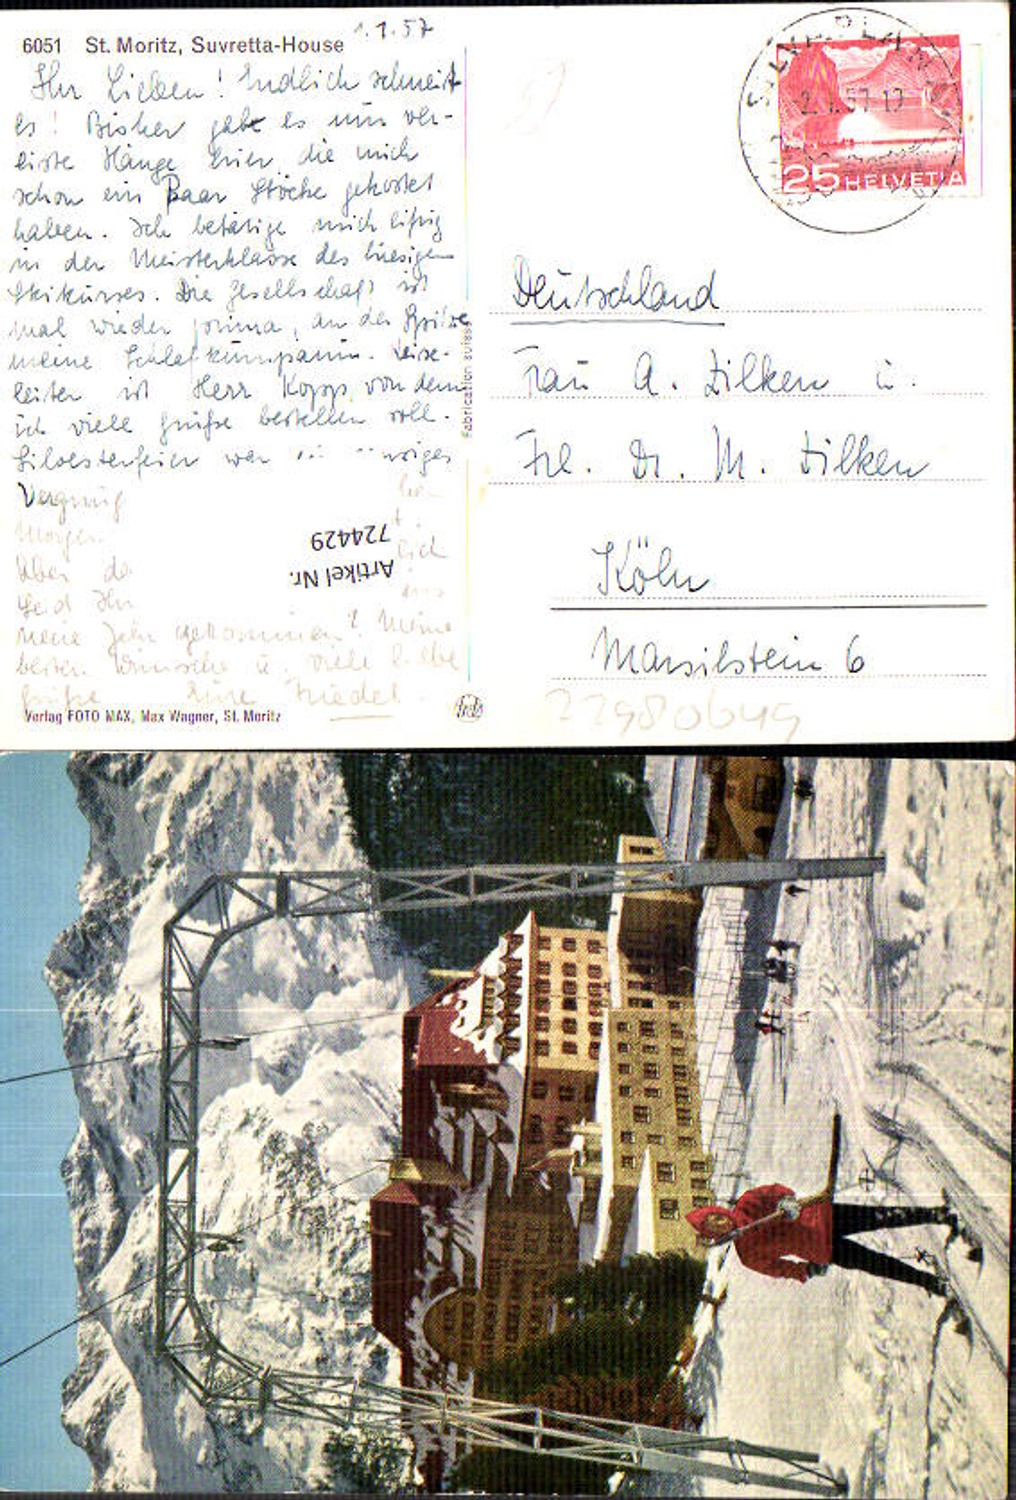 6051 St. Moritz, Suvretta-House
1.1.57
Ihr Lieben! Endlich schneit
es! Bisher gabt es nur ver-
eiste Hänge hier, die mich
schon ein Paar Stöcke gekostet
haben. Ich betätige mich eifrig
in der Meisterklasse des hiesigen
Skikurses. Die Gesellschaft ist
mal wieder prima, an der Spitze
meine Schlafkumpanin. Reise-
leiter ist Herr Kopp, von dem
ich viele Grüße bestellen soll.
Silvesterfeier war
Vergnüg
Morgen
Über
Seid Ihr
neue Jahr gekommen? Meine
besten Wünsche u. viele liebe
Grüße Eure Friedel.
Verlag FOTO MAX, Max Wagner, St. Moritz
Fabrication suisse
Artikel Nr.
724429
SILVAPLANA
2.1.57.17
25 HELVETIA
Deutschland
Frau A. Zilken u.
Frl. Dr. M. Zilken
Köln
Marsilstein 6
22980649